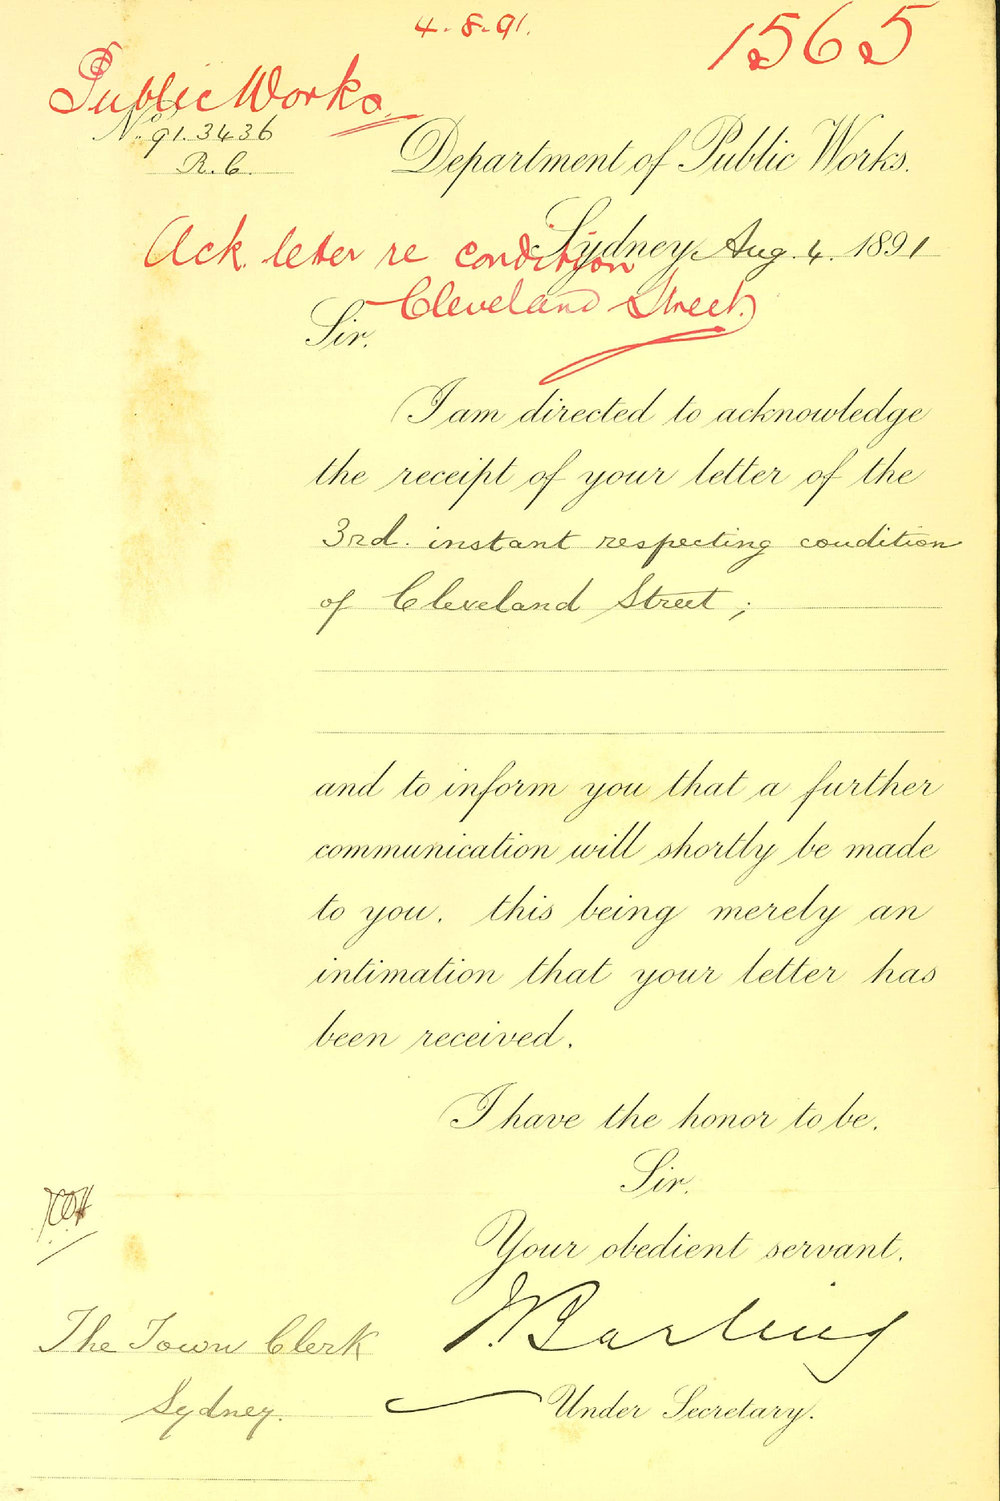 4.8.91.
1565
Public Works
No. 91.3436
R.C.
Department of Public Works.
Sydney, Aug. 4. 1891
Ack. letter re condition
Cleveland Street.
Sir,
I am directed to acknowledge
the receipt of your letter of the
3rd. instant respecting condition
of Cleveland Street;
and to inform you that a further
communication will shortly be made
to you, this being merely an
intimation that your letter has
been received.
I have the honor to be,
Sir,
Your obedient servant,
J Barling
Under Secretary.
The Town Clerk
Sydney.